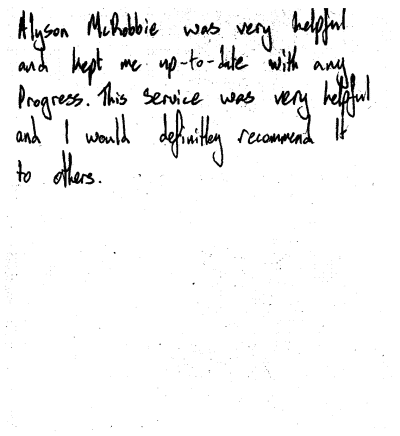 Alyson McRobbie was very helpful
and kept me up-to-date with any
Progress. This service was very helpful
and I would definitley recommend It
to others.